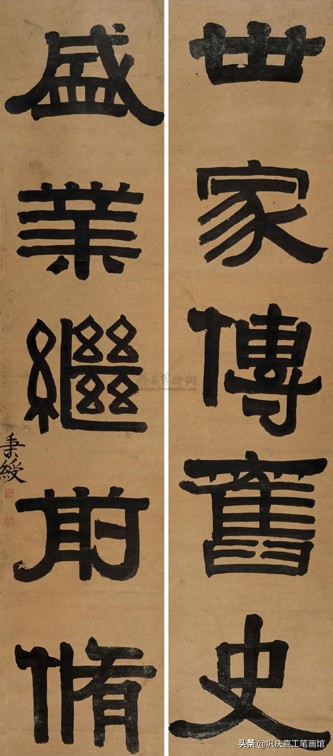 世家傳舊史
盛業繼前脩
秉綬
头条 @巩庆喜工笔画馆